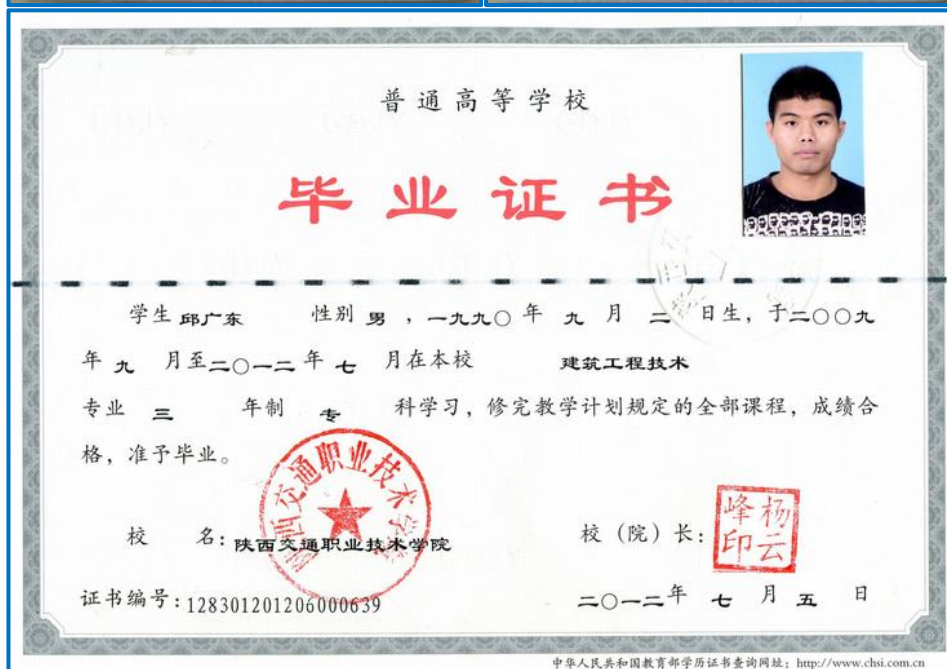 普通高等学校
毕业证书
学生 邱广东 性别 男 ，一九九〇 年 九 月 二 日生，于二〇〇九
年 九 月至二〇一二年 七 月在本校 建筑工程技术
专业 三 年制 专 科学习，修完教学计划规定的全部课程，成绩合
格，准予毕业。
陕西交通职业技术学院
校 名：陕西交通职业技术学院
校（院）长：
杨云
峰印
证书编号：128301201206000639
二〇一二年 七 月 五 日
中华人民共和国教育部学历证书查询网址：http://www.chsi.com.cn